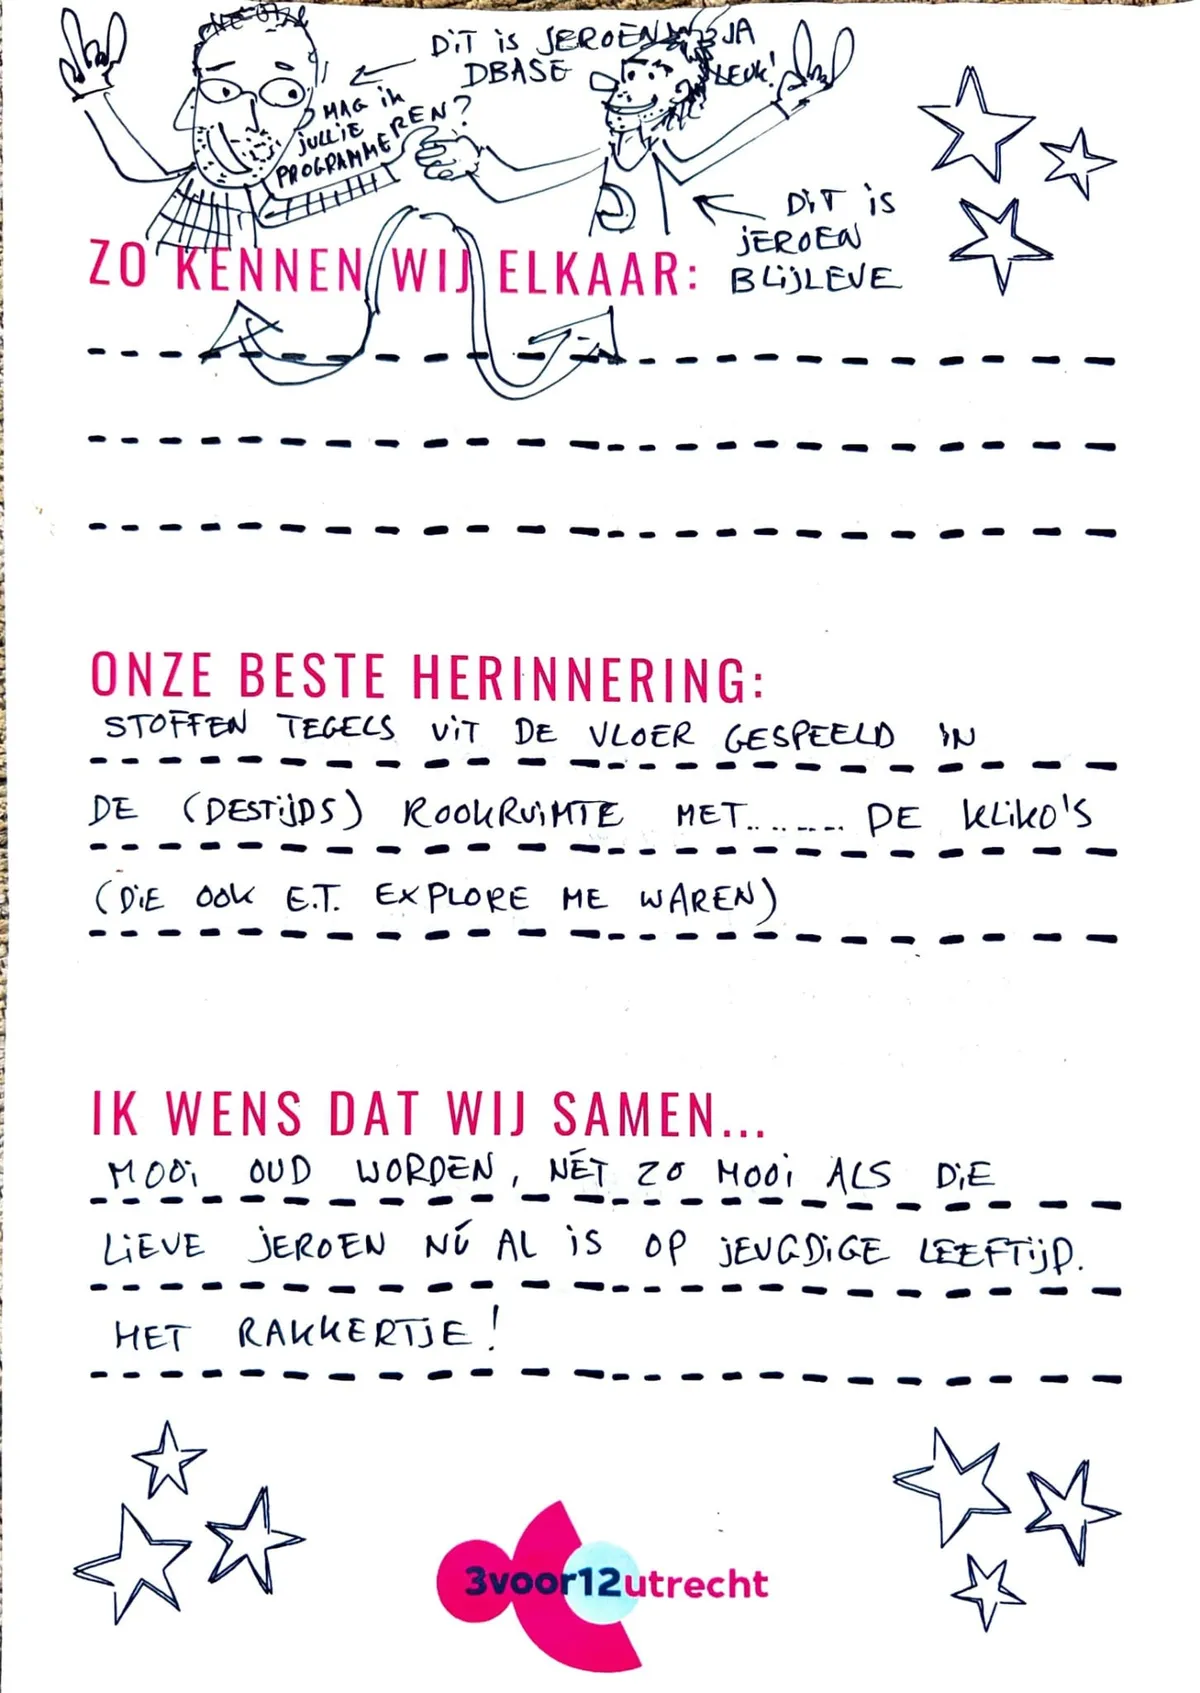 DIT IS JEROEN
DBASE
JA
LEUK!
MAG IK
JULLIE
PROGRAMMEREN?
DIT IS
JEROEN
BLIJLEVE
ZO KENNEN WIJ ELKAAR:
ONZE BESTE HERINNERING:
STOFFEN TEGELS UIT DE VLOER GESPEELD IN
DE (DESTIJDS) ROOKRUIMTE MET......... DE KLIKO'S
(DIE OOK E.T. EXPLORE ME WAREN)
IK WENS DAT WIJ SAMEN...
MOOI OUD WORDEN, NÉT ZO MOOI ALS DIE
LIEVE JEROEN NÚ AL IS OP JEUGDIGE LEEFTIJD.
HET RAKKERTJE!
3voor12utrecht